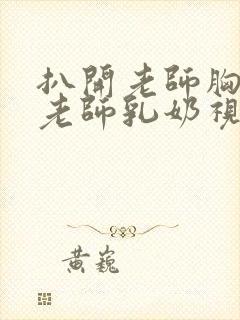 扒開老師胸
老師乳奶視
黃巍